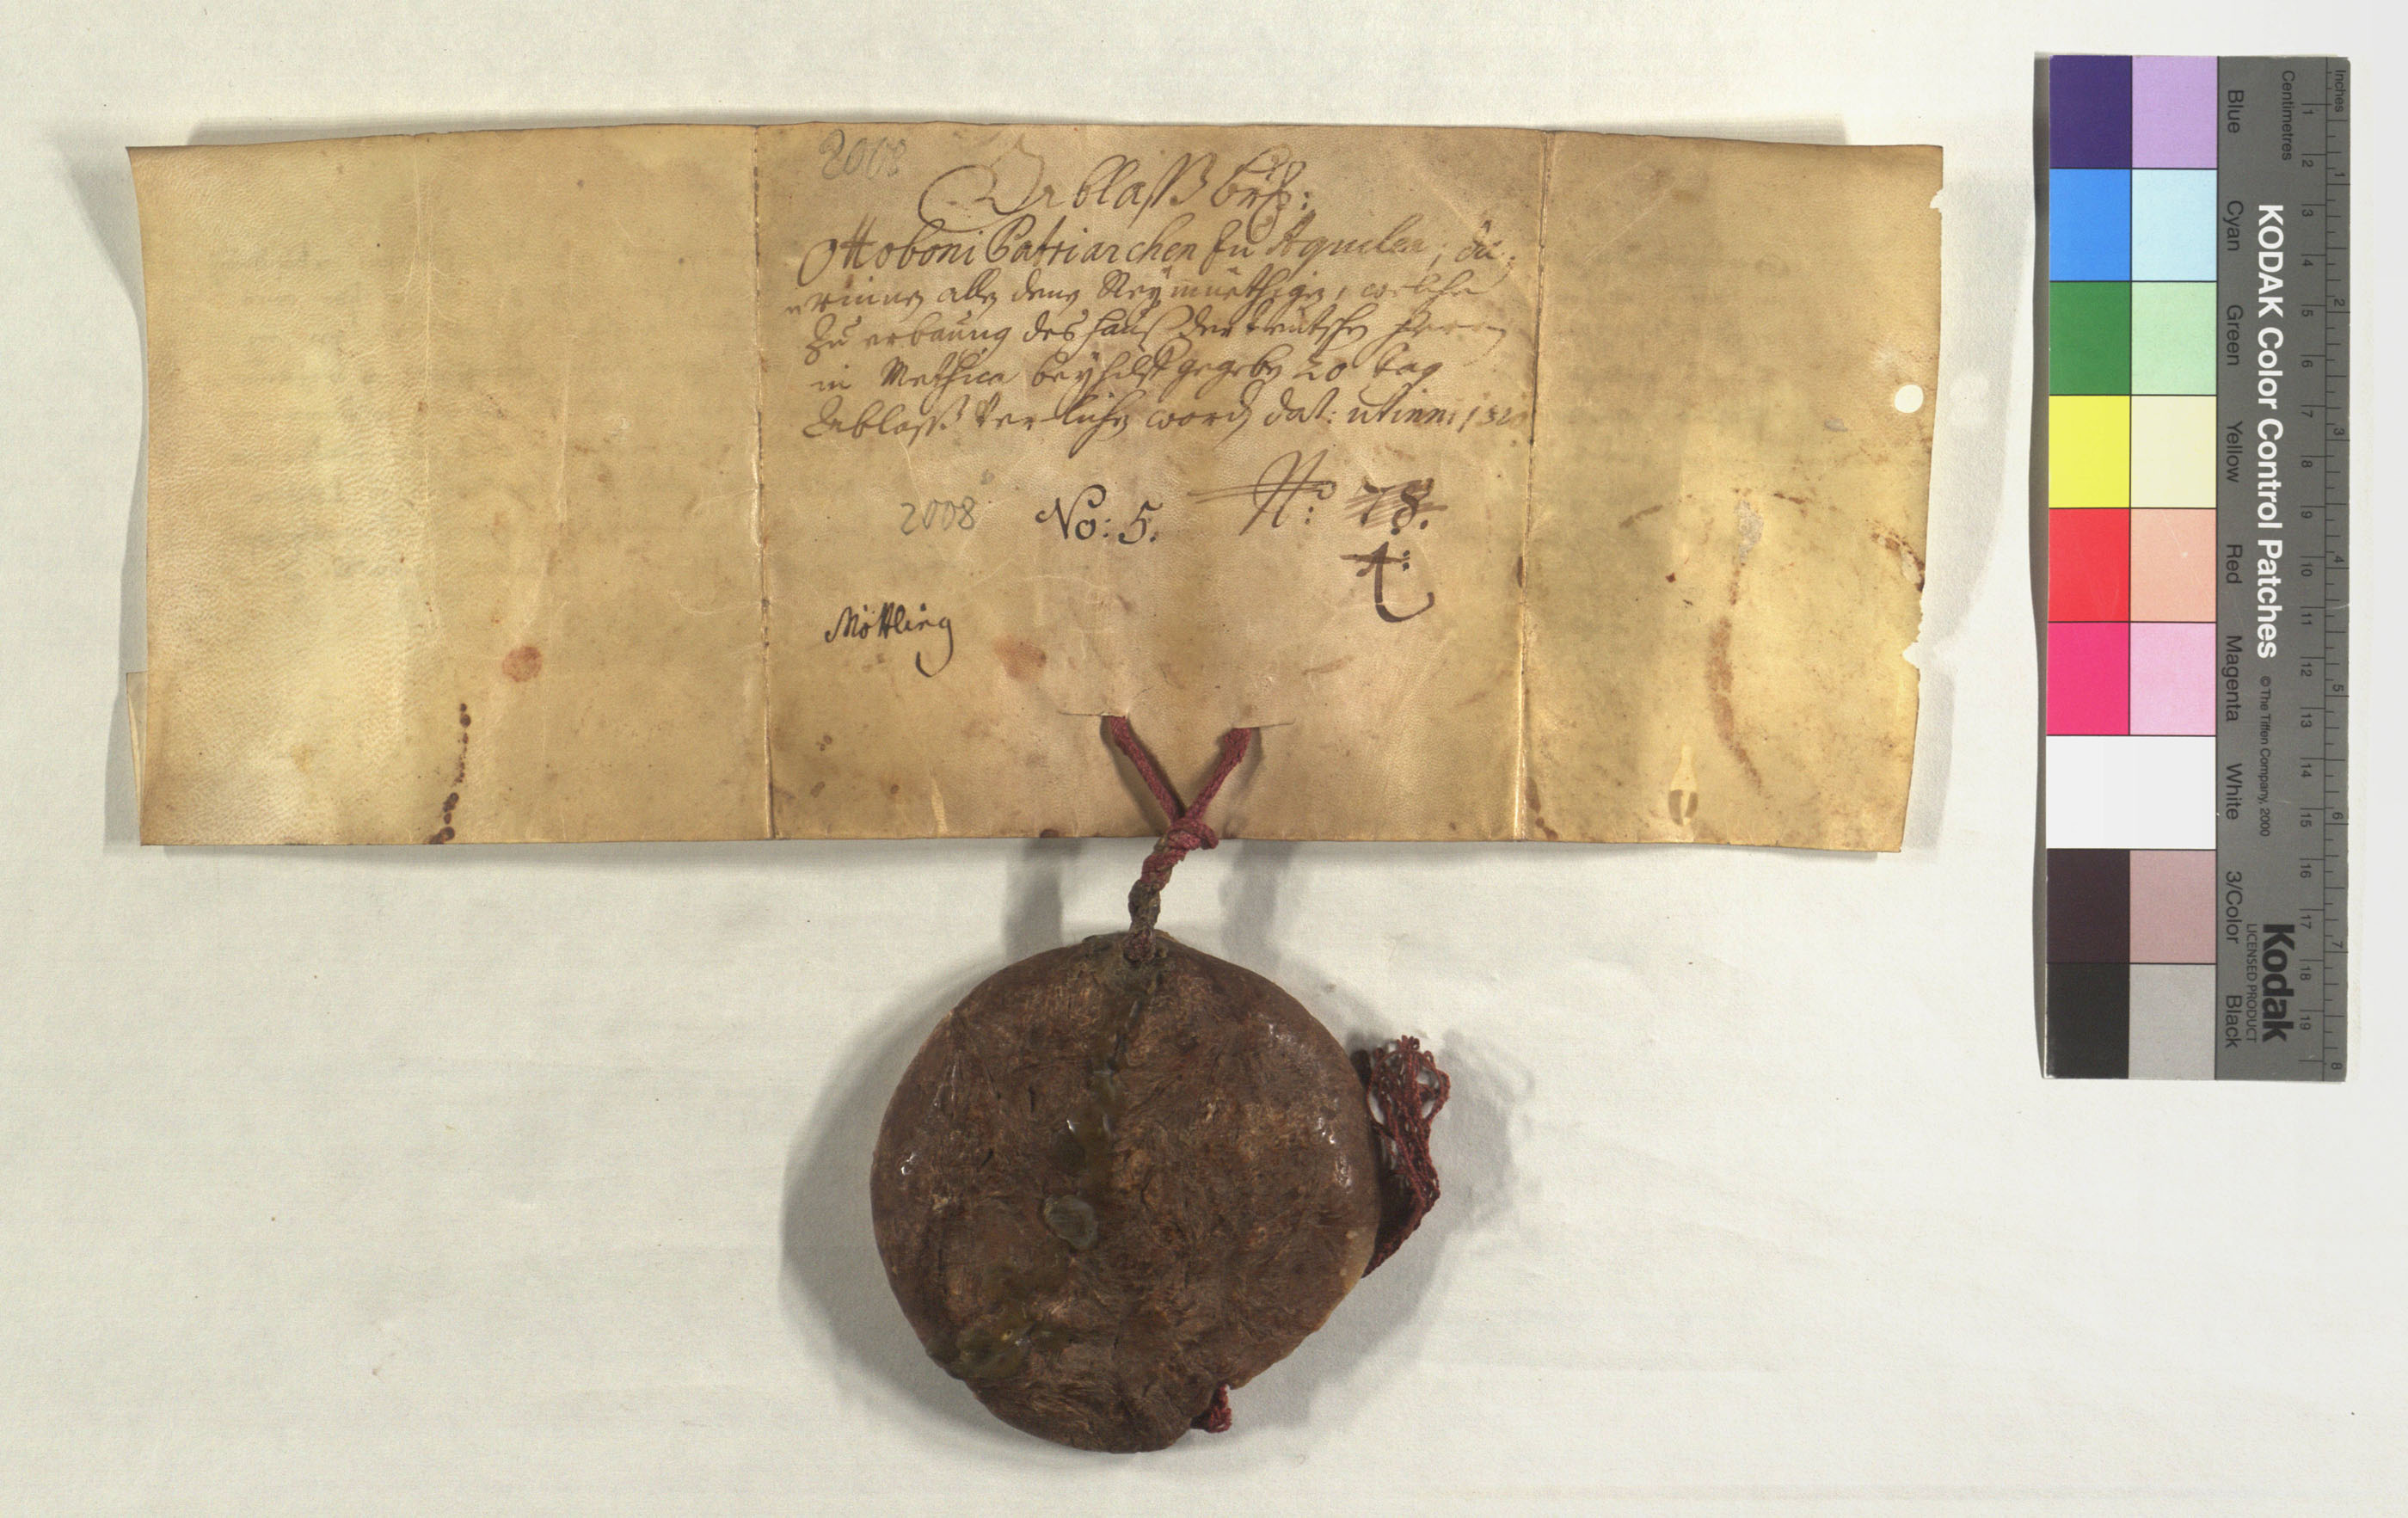 2008
Ablaß brf:
Ottoboni Patriarchen zu Aquilea, da
alle denen Reÿmüethigen, welche
Zu erbauung des hauß der teutschen Herren
in Methica beÿhilff gegeben 20 tag
Ablaß verlichen word dat: utinni
2008 No: 5. No: 78.
A:
Möttling
KODAK Color Control Patches © The Tiffen Company, 2000 Kodak LICENSED PRODUCT
Blue Cyan Green Yellow Red Magenta White 3/Color Black
Centimetres 1 2 3 4 5 6 7 8 9 10 11 12 13 14 15 16 17 18 19
Inches 1 2 3 4 5 6 7 8